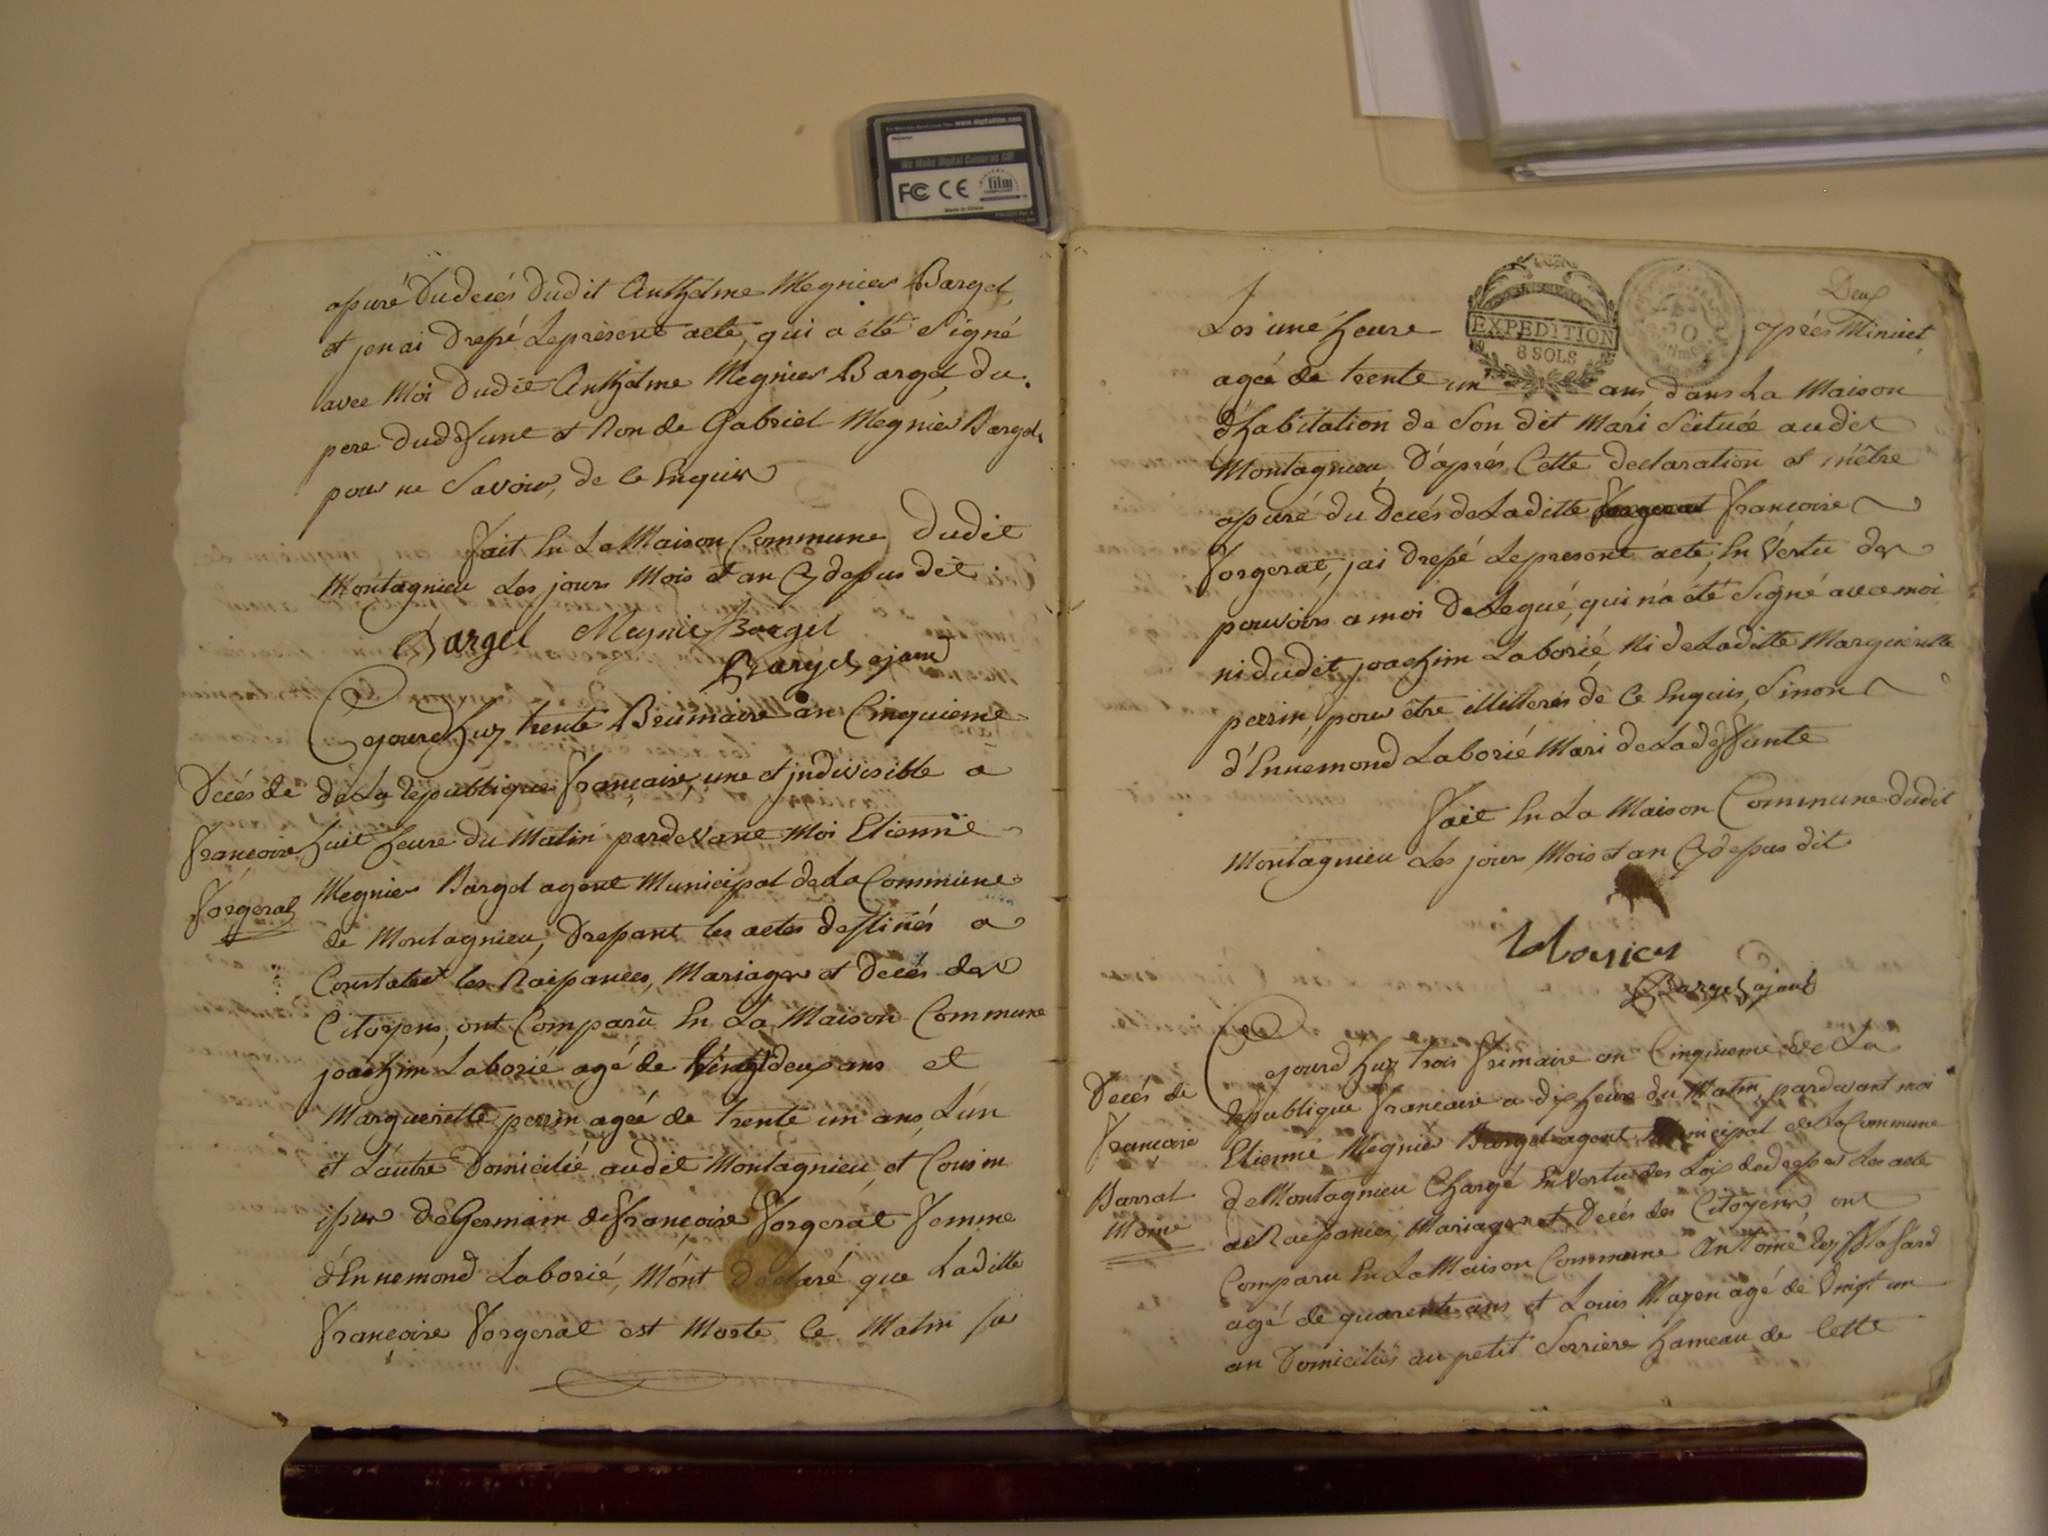 We Make Digital Cameras Go!
FC CE film
Made in China
apuré du decés dudit Anthelme Megnier Bargel
et jen ai drepé Le present acte, qui a été Signé
avec Moi dudit Anthelme Megnier Bargel, du
pere dudefunt et Non de Gabriel Megnier Bargel
pour ne Savoir, de ce Enquis
fait En La Maison Commune dudit
Montagnieu Les jours Mois et an Cy depus dit
Bargel Megnie Bargel
Bargel ajoint
Cejourdhuy trente Brumaire an Cinquieme
Decés de
françoise
forgerat
de La republique françaire, une et jndivisible a
huit heure du Matin pardevant Moi Etienne
Megnier Bargel agent Municipal de La Commune
de Montagnieu, drepant les actes destinés a
Constater les Naipances, Mariages et Decés des
Citoyens, ont Comparû En La Maison Commune
joachim Laborié agé de Vingt deux ans et
Marguerite perrin ageé de trente un ans, L'un
et L'autre Domicilié audit Montagnieu, et Cousin
ipus de Germain de françoise forgerat femme
d'Ennemond Laborié, M'ont déclaré que Laditte
françoise forgerat est Morte ce Matin Sur
Deux
Les une heure après Minuit
EXPEDITION
8 SOLS
ageé de trente un ans, dans La Maison
d'habitation de Son dit Mari Scituée audit
Montagnieu, D'après Cette declaration et m'être
apuré du Decés de Laditte forgerat françoise
forgerat, jai drepé Le present acte, En Vertu des
pouvoirs a moi deLegué, qui n'a été Signé avec moi
ni dudit joachim Laborié, Ni de Laditte Marguerite
perrin, pour être illitterés de ce Enquis, Sinon
d'Ennemond Laborié Mari de La deffunte
fait En La Maison Commune dudit
Montagnieu Les jours Mois et an Cy depus dit
Bargel ajoint
Cejourdhuy trois frimaire an Cinquieme de La
Decés de
françoise
Barral
Moine
republique françaire a dix heure du Matin, pardevant moi
Etienne Megnier Bargel agent Municipal de La Commune
de Montagnieu Chargé En Vertu des Loix de dreper Les acte
de Naipances, Mariages et Decés des Citoyens, ont
Comparu En La Maison Commune Antoine
agé de quarente ans et Louis Mayen agé de Vingt un
an Domiciliés au petit Serriere hameau de Cette